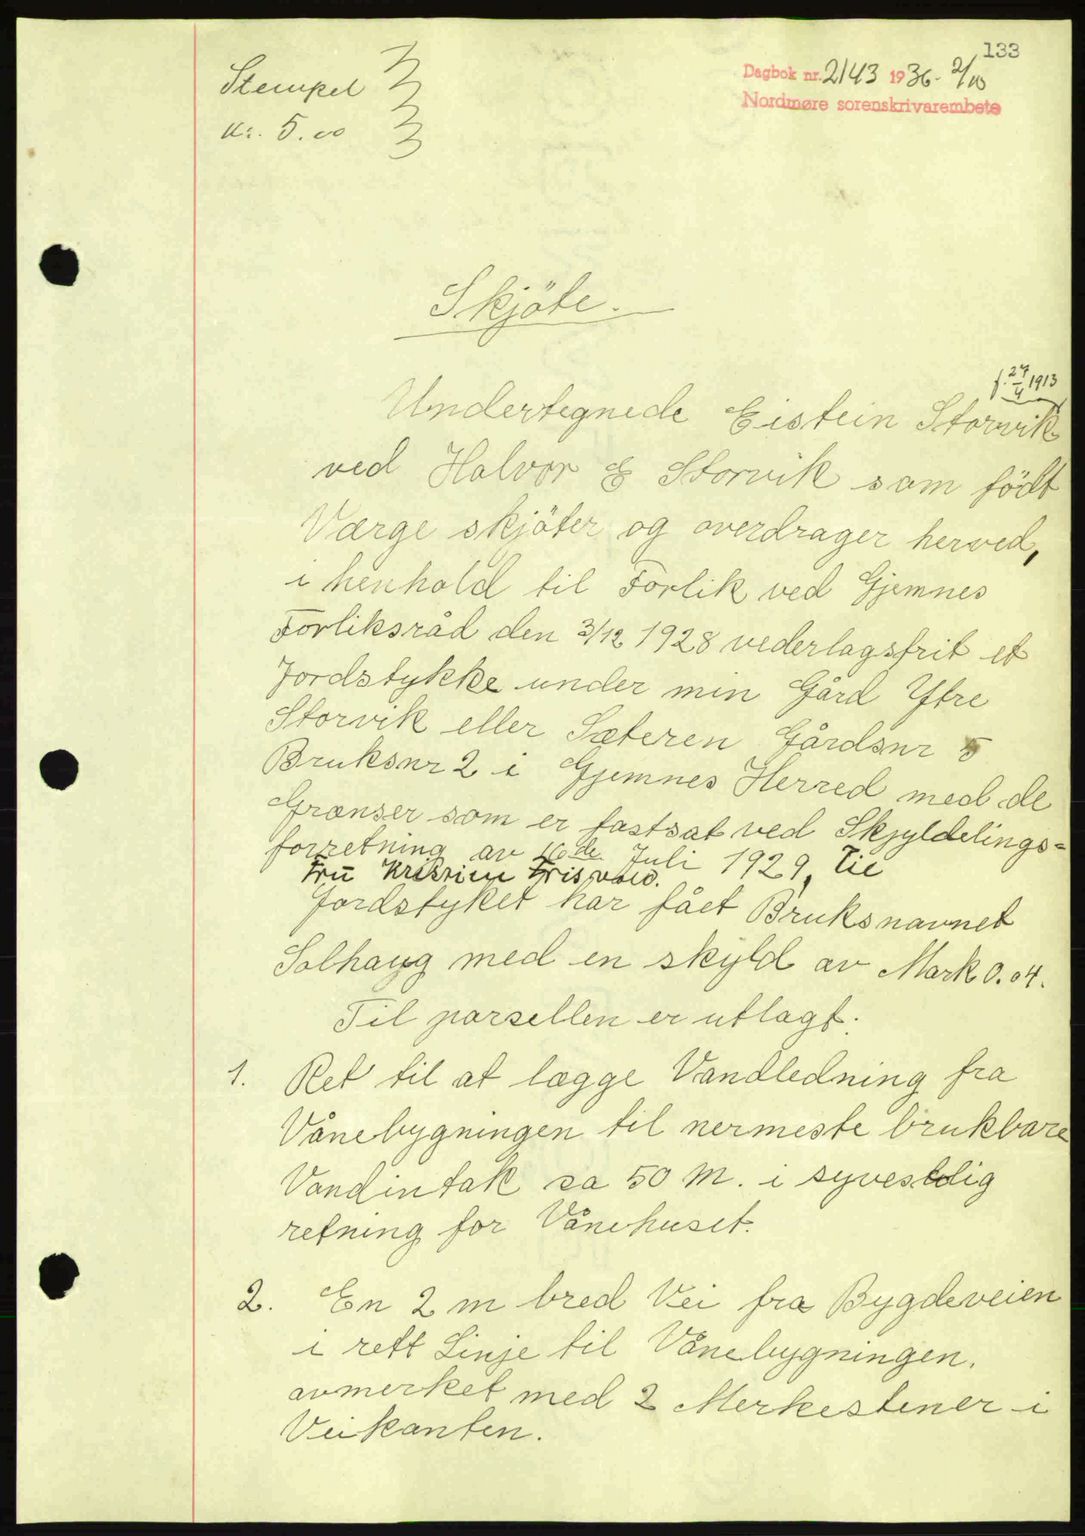 133
Stempel
Kr. 5.00
Dagbok nr. 2143 1936 - 2/10
Nordmøre sorenskrivarembete
Skjöte.
f. 27/4 1913
Undertegnede Eistein Storvik
ved Halvor E Storvik som födt
Værge skjöter og overdrager herved,
i henhold til Forlik ved Gjemnes
Forliksråd den 3/12 1928 vederlagsfrit et
Jordstykke under min Gård Ytre
Storvik eller Sæteren Gårdsnr 5
Bruksnr 2 i Gjemnes Herred med de
Grænser som er fastsat ved Skjyldelings=
forretning av 16de Juli 1929, til
Fru Kristine Frisvold.
Jordstyket har fået Bruksnavnet
Solhaug med en skyld av Mark 0.04.
Til parsellen er utlagt:
1. Ret til at lægge Vandledning fra
Vånebygningen til nermeste brukbare
Vandintak ca 50 M. i syvestlig
retning for Vånehuset.
2. En 2 m bred Vei fra Bygdeveien
i rett Linje til Vånebygningen.
avmerket med 2 Merkestener i
Veikanten.